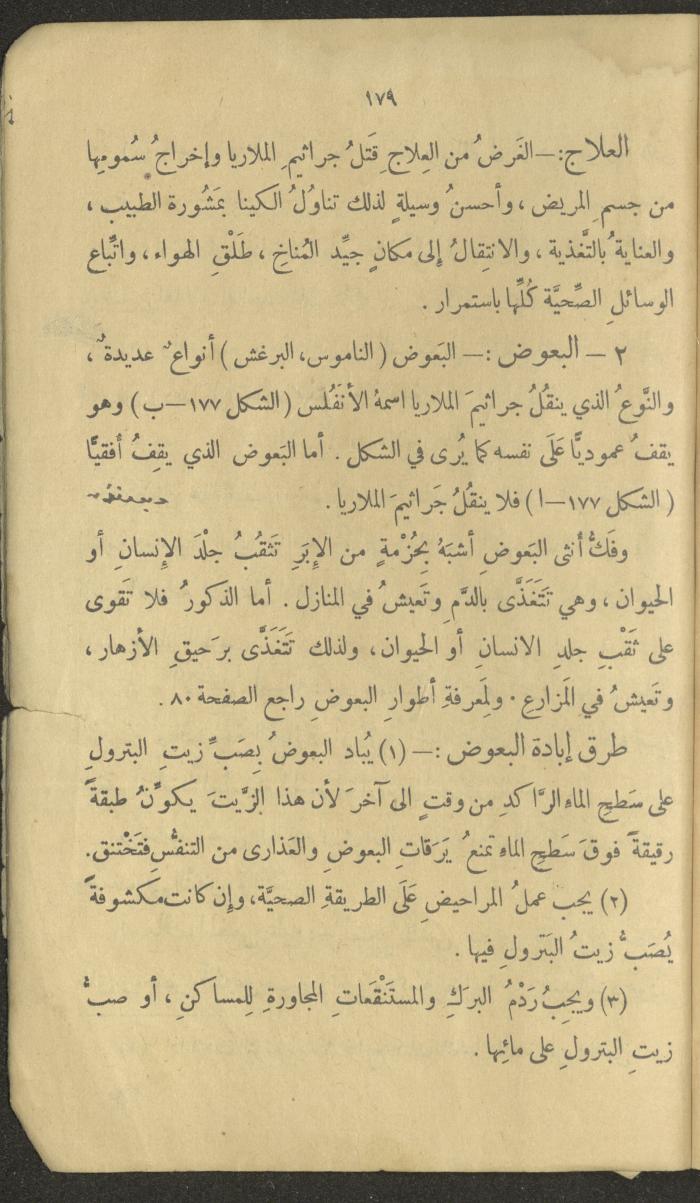 ١٧٩
العلاج: — الغَرضُ من العِلاجِ قَتلُ جراثيمِ الملاريا وإخراجُ سُمومِها
من جسمِ المريض ، وأحسنُ وسيلةٍ لذلك تناوُلُ الكينا بمَشُورة الطبيب ،
والعنايةُ بالتَّغذية ، والانتِقالُ إلى مكانٍ جيِّد المُناخِ ، طَلْقِ الهواء ، واتِّباع
الوسائلِ الصِّحيَّة كُلِّها باستمرار .
٢ — البعوض :— البَعوض ( الناموس، البرغش ) أنواعٌ عديدةٌ ،
والنَّوعُ الذي ينقُلُ جراثيمَ الملاريا اسمهُ الأنفُلس ( الشكل ١٧٧—ب ) وهو
يقفُ عموديًّا عَلَى نفسه كما يُرى في الشكل . أما البَعوض الذي يقِفُ أفقيًّا
( الشكل ١٧٧—ا ) فلا ينقُلُ جَراثيمَ الملاريا .
وفَكُّ أنثى البَعوضِ أشبَهُ بحُزْمةٍ من الإِبَرِ تَثقُبُ جلْدَ الإِنسانِ أو
الحيوان ، وهي تتَغَذَّى بالدَّم وتَعيشُ في المنازل . أما الذكورُ فلا تَقوى
على ثَقْبِ جلدِ الانسانِ أو الحيوان ، ولذلك تَتَغَذَّى برَحيقِ الأزهار ،
وتَعيشُ في المَزارعِ . ولمَعرفةِ أطوارِ البعوضِ راجع الصفحة ٨٠ .
طرق إبادة البعوض :— (١) يُباد البعوضُ بِصَبِّ زيتِ البترولِ
على سَطحِ الماءِ الرَّاكدِ من وقتٍ الى آخرَ لأن هذا الزَّيتَ يكوِّنُ طبقةً
رقيقةً فوقَ سَطحِ الماءِ تمنعُ يَرَقاتِ البعوضِ والعَذارى من التنفُّسِ فتَخْتنق.
(٢) يجب عملُ المراحيضِ عَلَى الطريقةِ الصحيَّة، وإن كانت مكشوفةً
يُصَبُّ زيتُ البَترولِ فيها .
(٣) ويجِبُ رَدْمُ البرَكِ والمستَنْقَعاتِ المجاورةِ لِلمساكنِ ، أو صبُّ
زيتِ البترولِ على مائِها .